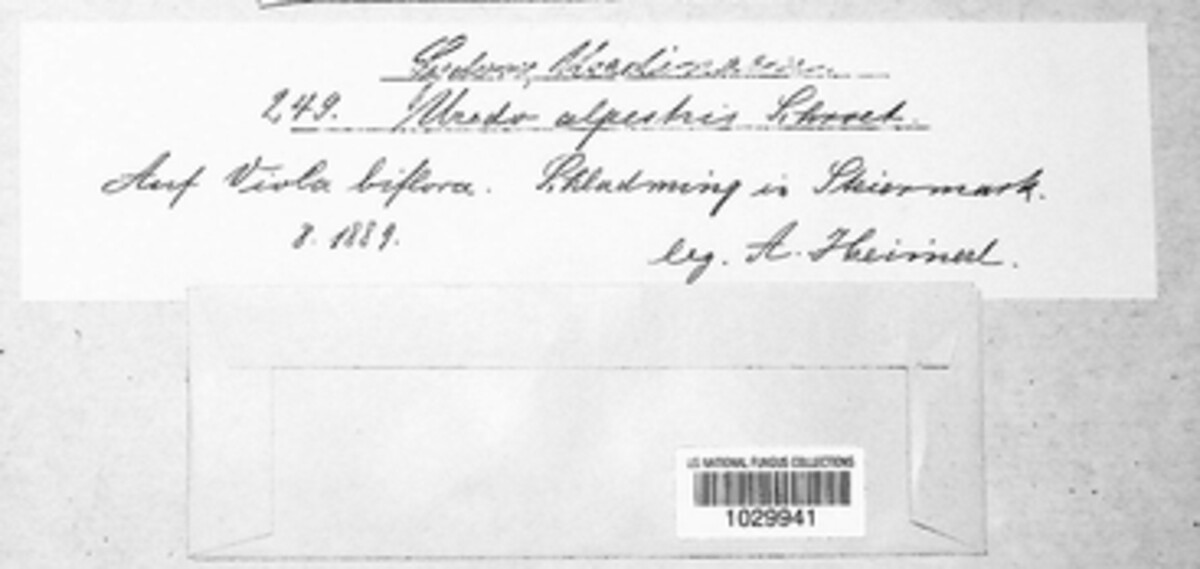 Sydow, Uredineen.
249. Uredo alpestris Schroet.
Auf Viola biflora. Schladming in Steiermark.
8. 1889.
leg. A. Heimerl.
US NATIONAL FUNGUS COLLECTIONS
1029941